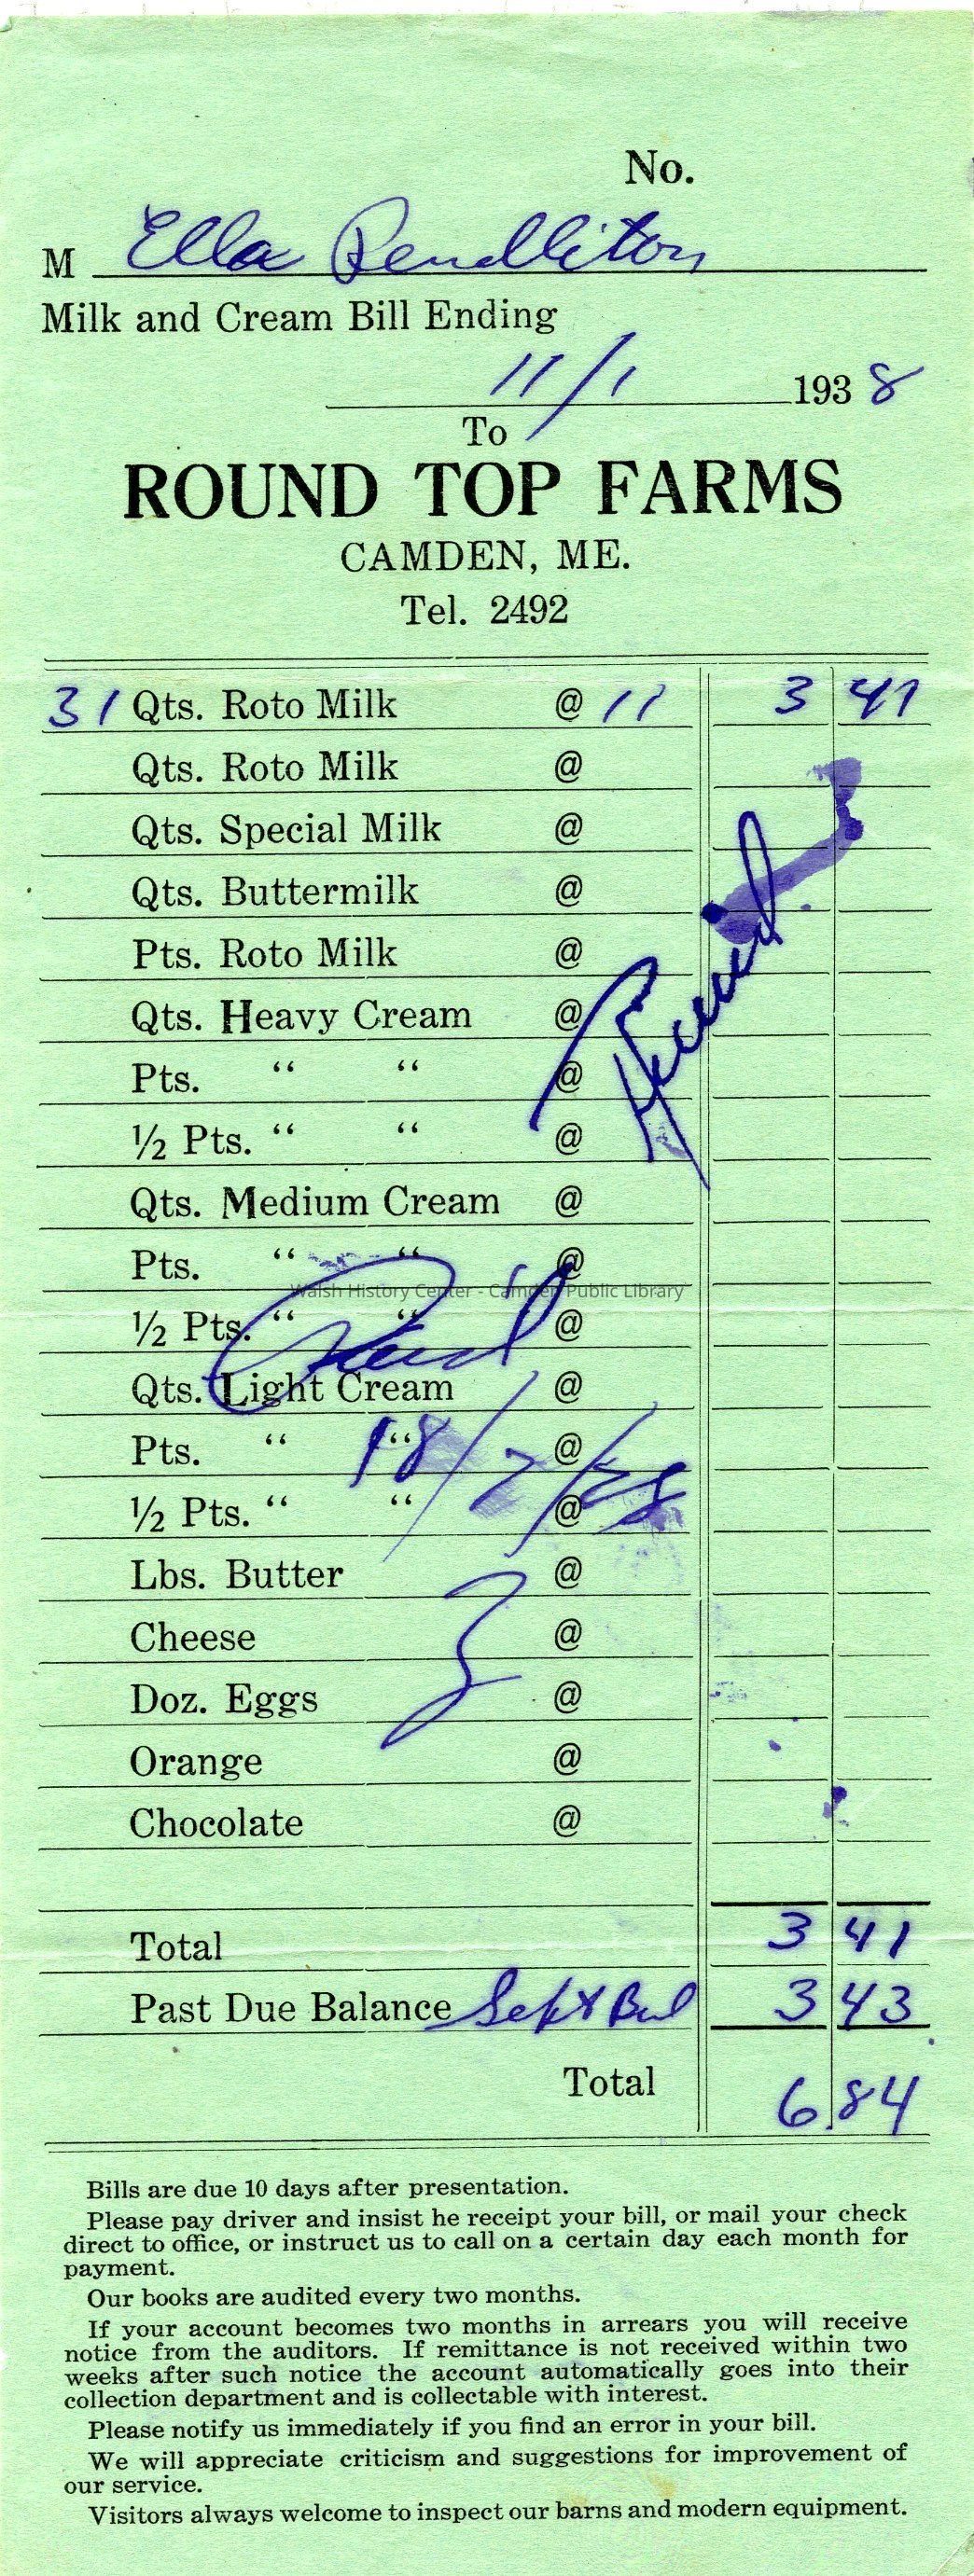 No.
M Ella Pendlliton
Milk and Cream Bill Ending
11/1 1938
To
ROUND TOP FARMS
CAMDEN, ME.
Tel. 2492
31 Qts. Roto Milk @ 11 3 41
Qts. Roto Milk @
Qts. Special Milk @
Qts. Buttermilk @
Pts. Roto Milk @
Qts. Heavy Cream @
Pts. “ “ @
½ Pts. “ “ @
Qts. Medium Cream @
Pts. “ “ @
Walsh History Center - Camden Public Library
½ Pts. “ “ @
Paid
Qts. Light Cream @
Pts. “ “ @
½ Pts. “ “ @
Lbs. Butter @
Cheese @
Doz. Eggs @
Orange @
Chocolate @
Total 3 41
Past Due Balance Sept Bal 3 43
Total 6.84
Bills are due 10 days after presentation.
Please pay driver and insist he receipt your bill, or mail your check
direct to office, or instruct us to call on a certain day each month for
payment.
Our books are audited every two months.
If your account becomes two months in arrears you will receive
notice from the auditors. If remittance is not received within two
weeks after such notice the account automatically goes into their
collection department and is collectable with interest.
Please notify us immediately if you find an error in your bill.
We will appreciate criticism and suggestions for improvement of
our service.
Visitors always welcome to inspect our barns and modern equipment.